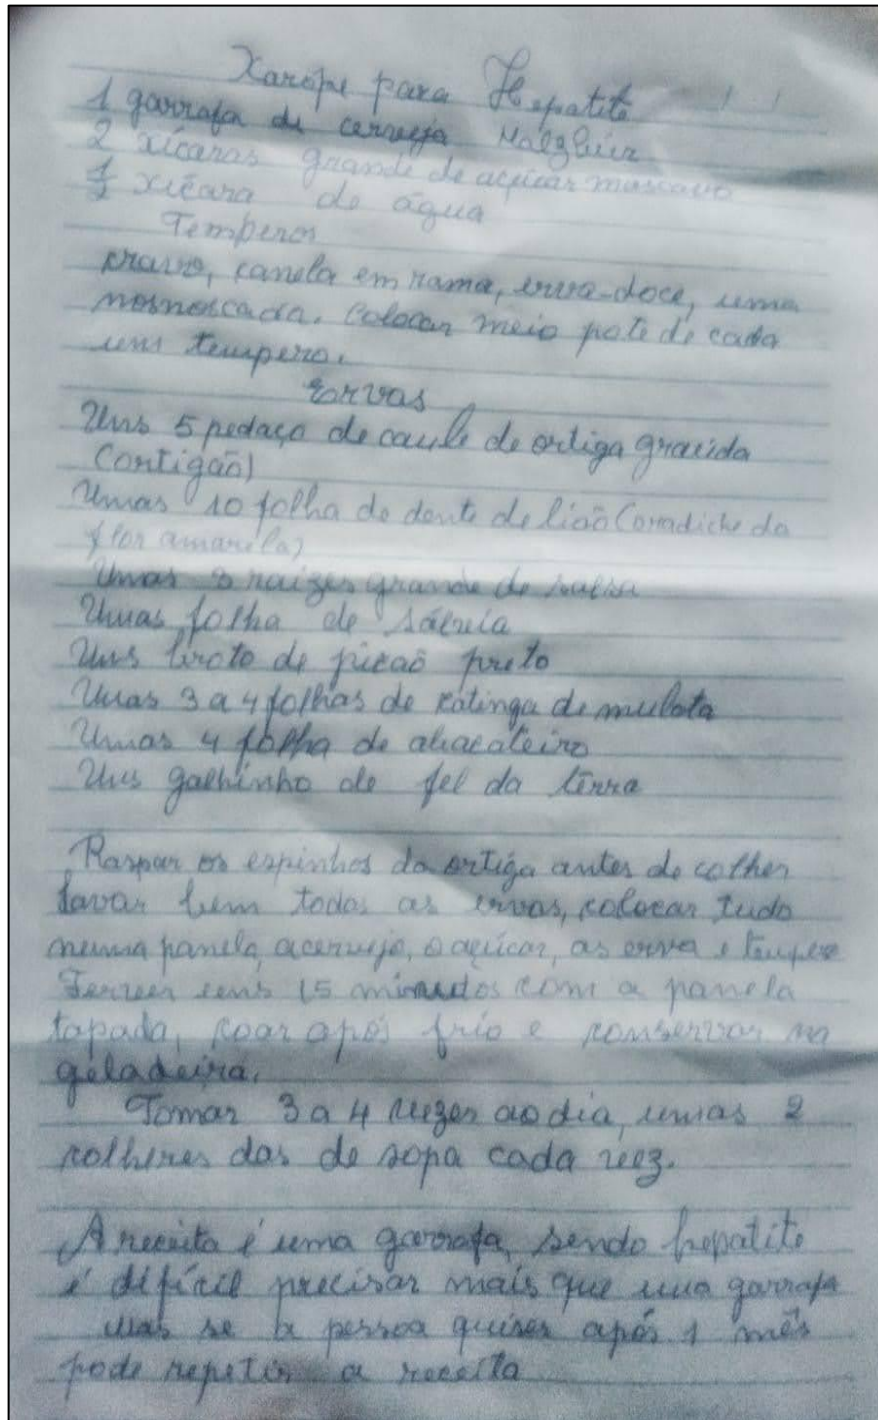 Xarope para Hepatite
1 garrafa de cerveja Malzbier
2 xícaras grande de açúcar mascavo
1/2 xícara de água
Temperos
cravo, canela em rama, erva-doce, uma
nosnoscada. Colocar meio pote de cada
um tempero.
Ervas
Uns 5 pedaço de caule de ortiga graúda
(ortigão)
Umas 10 folha de dente de lião (oradiche da
flor amarela)
Umas 3 raizes grande de salsa
Umas folha de sálvia
Uns broto de picaõ preto
Umas 3 a 4 folhas de catinga de mulata
Umas 4 folha de abacateiro
Uns galhinho de fel da terra
Raspar os espinhos da ortiga antes de colher
lavar bem todas as ervas, colocar tudo
numa panela, a cerveja, o açúcar, as erva e tempero
Ferver uns 15 minutos com a panela
tapada, coar após frio e conservar na
geladeira.
Tomar 3 a 4 vezes ao dia, umas 2
colheres das de sopa cada vez.
A receita é uma garrafa, sendo hepatite
é difícil precisar mais que uma garrafa
mas se a pessoa quiser após 1 mês
pode repetir a receita